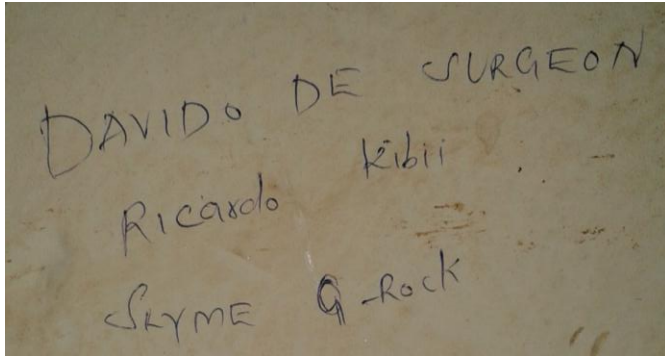 DAVIDO DE SURGEON
Ricardo Kibii
SKYME G-Rock